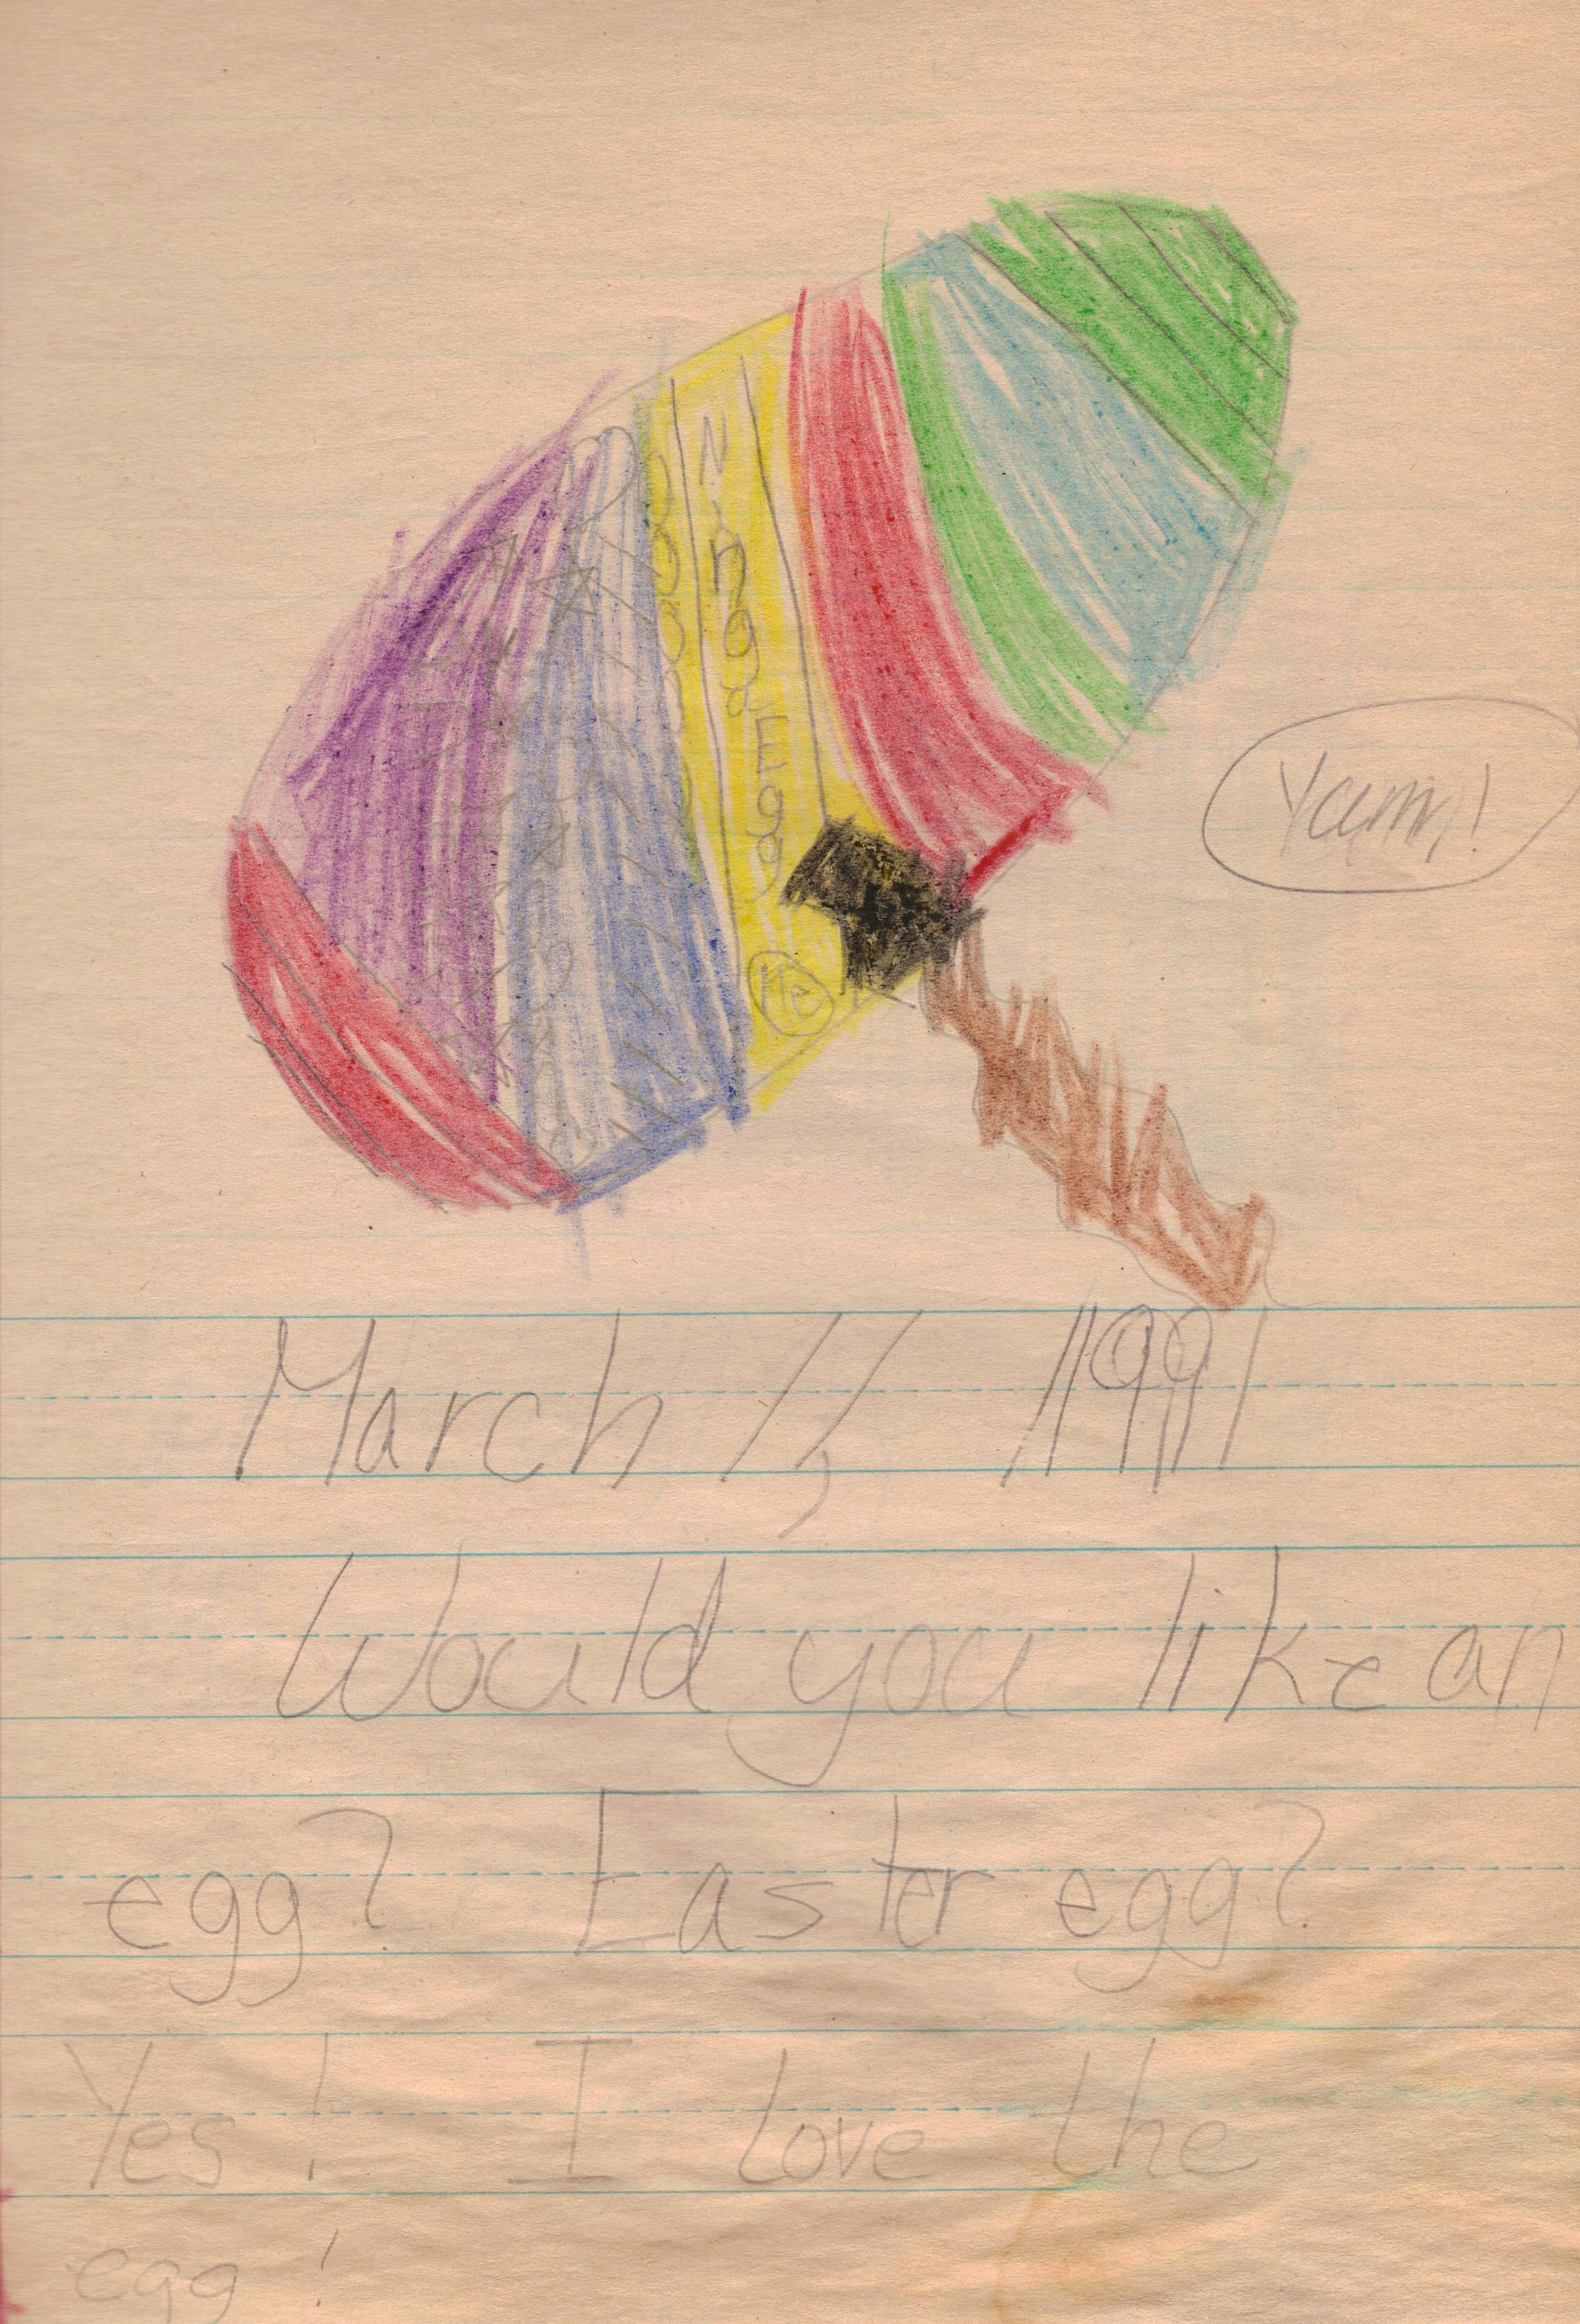 Ninga Egg
Yum!
March 11, 1991
Would you like an
egg? Easter egg?
Yes! I love the
egg!